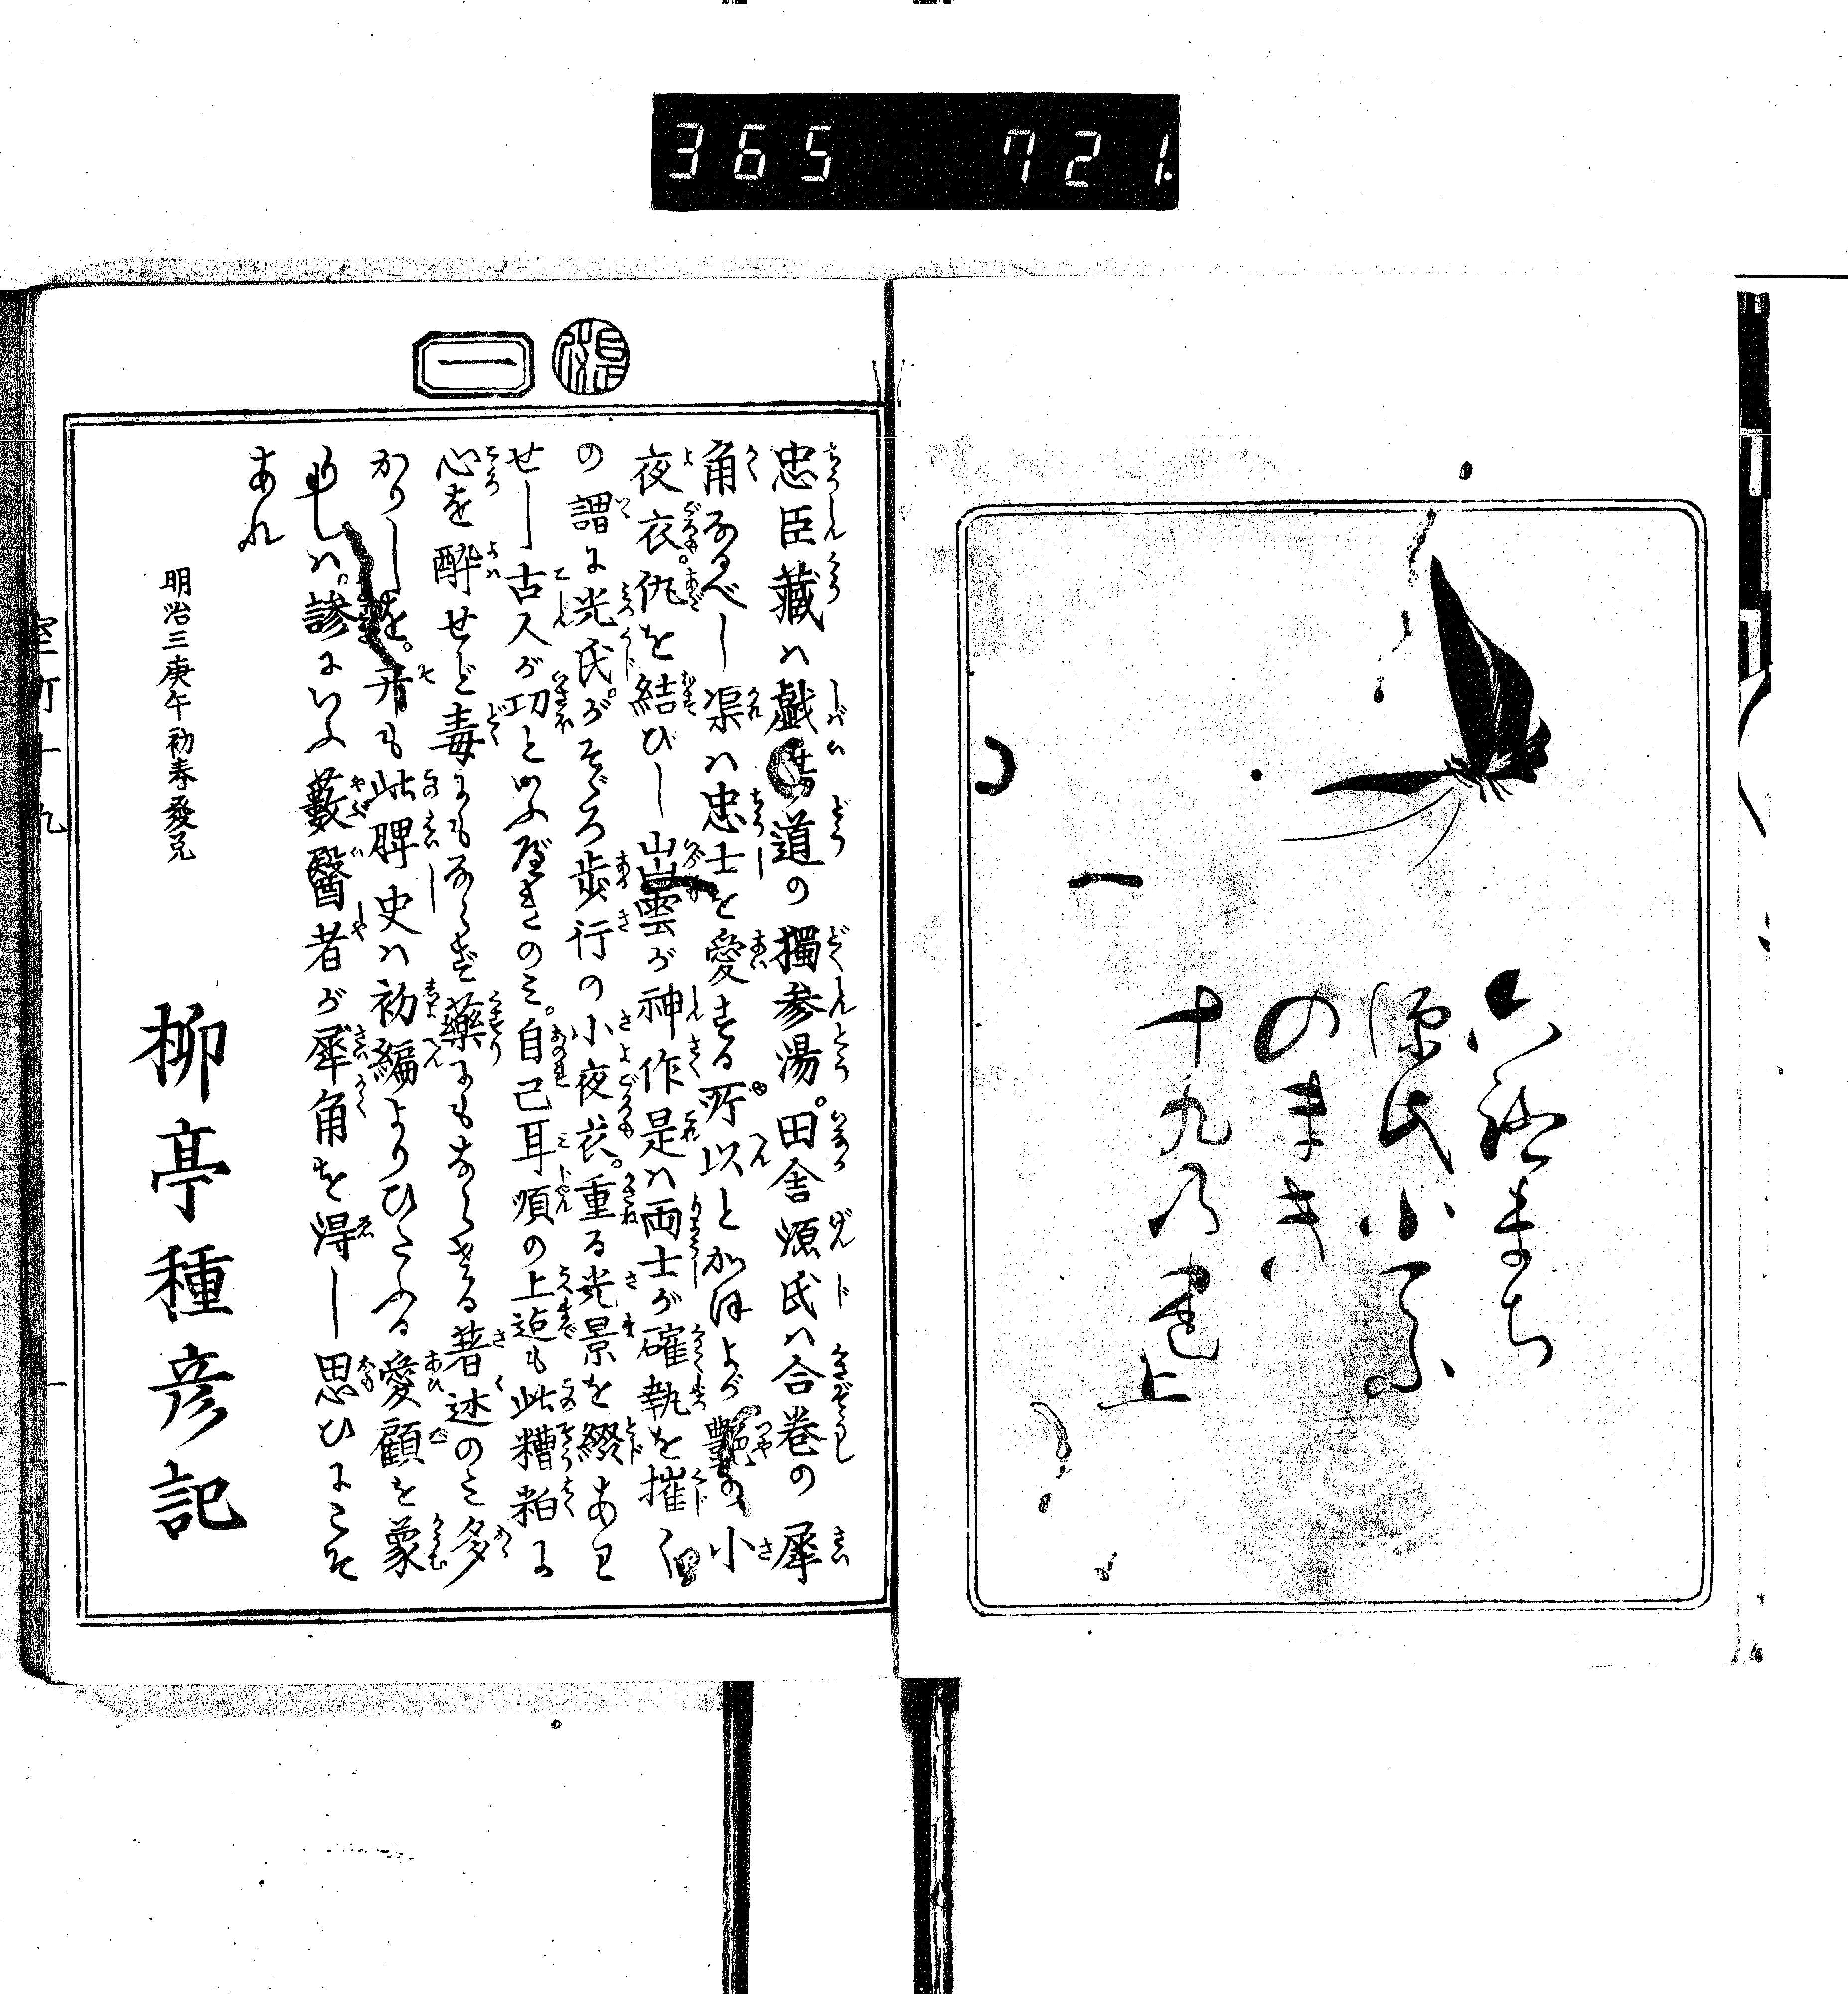 365 721.
源氏小蝶
のまき
十九の書上
一
忠臣藏ハ戯塲道の獨参湯。田舎源氏ハ合巻の犀
角なるべし渠ハ忠士を愛する所以とかほよが艶の小
夜衣。仇を結びし出雲が神作是ハ両士が確執を摧く
の謂に光氏。がそゞろ歩行の小夜衣。重る光景を綴あわ
せし古人が功といふべきのミ。自己耳順の上迄も此糟粕に
心を酔せど毒にもならず薬にもならざる著述のミ多
かりしを。开も此稗史ハ初編よりひたふる愛顧を蒙
りしハ。諺にいふ藪醫者が犀角を得し思ひにこそ
あれ
明治三庚午初春發兌
柳亭種彦記
室町十九
一